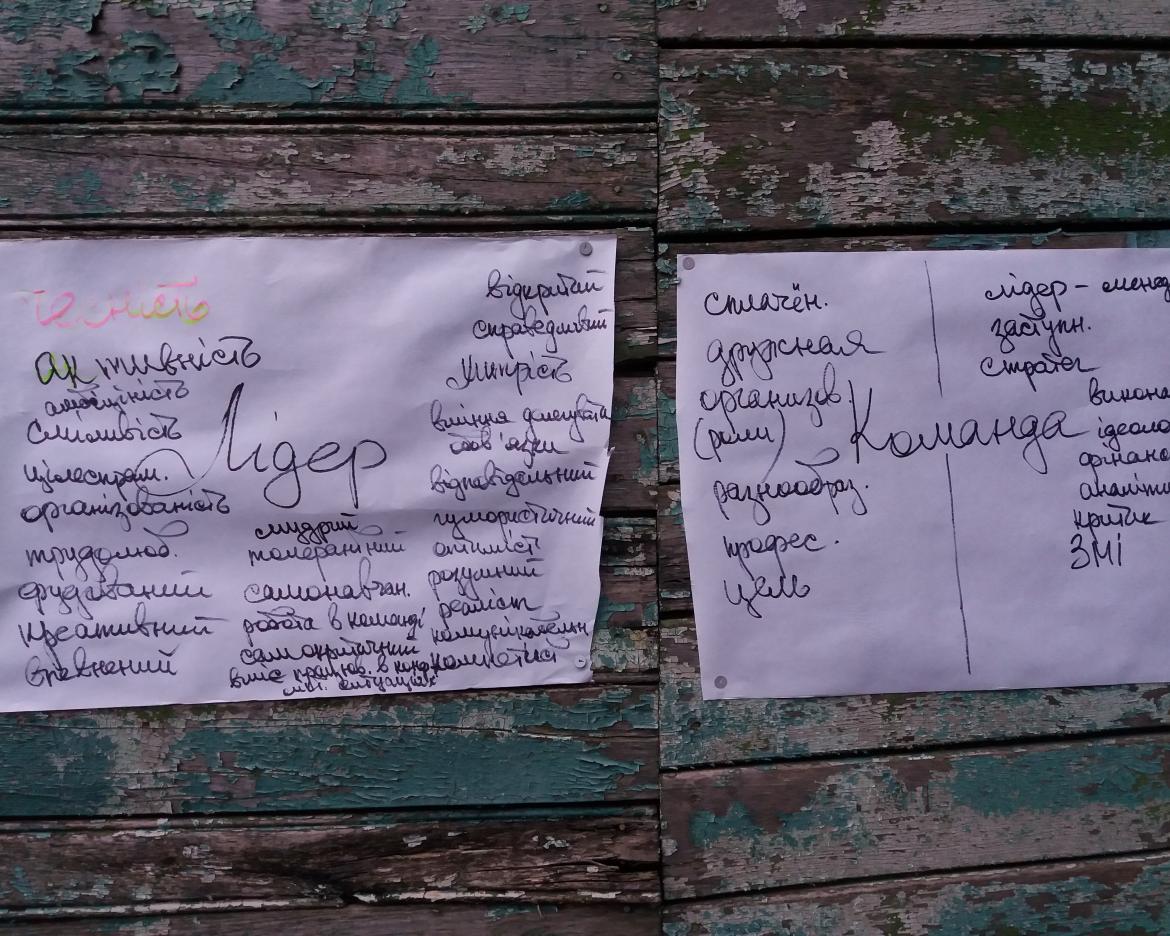 активність
амбіційність
сміливість
цілеспрям.
організованість
трудолюб.
ерудований
креативний
впевнений
Лідер
мудрий
толерантний
самонавчан.
робота в команді
самокритичний
вміє працюв. в конф
ситуаціях
відкритий
справедливий
хитрість
вміння делегувати
обов'язки
відповідальний
гумористичний
оптиміст
розумний
реаліст
комунікабельн
сплачён.
дружная
организов.
(роли)
разнообраз.
профес.
цель
Команда
лідер - менед
заступн.
стратег
викона
ідеоло
фінанс
аналіти
критик
ЗМІ